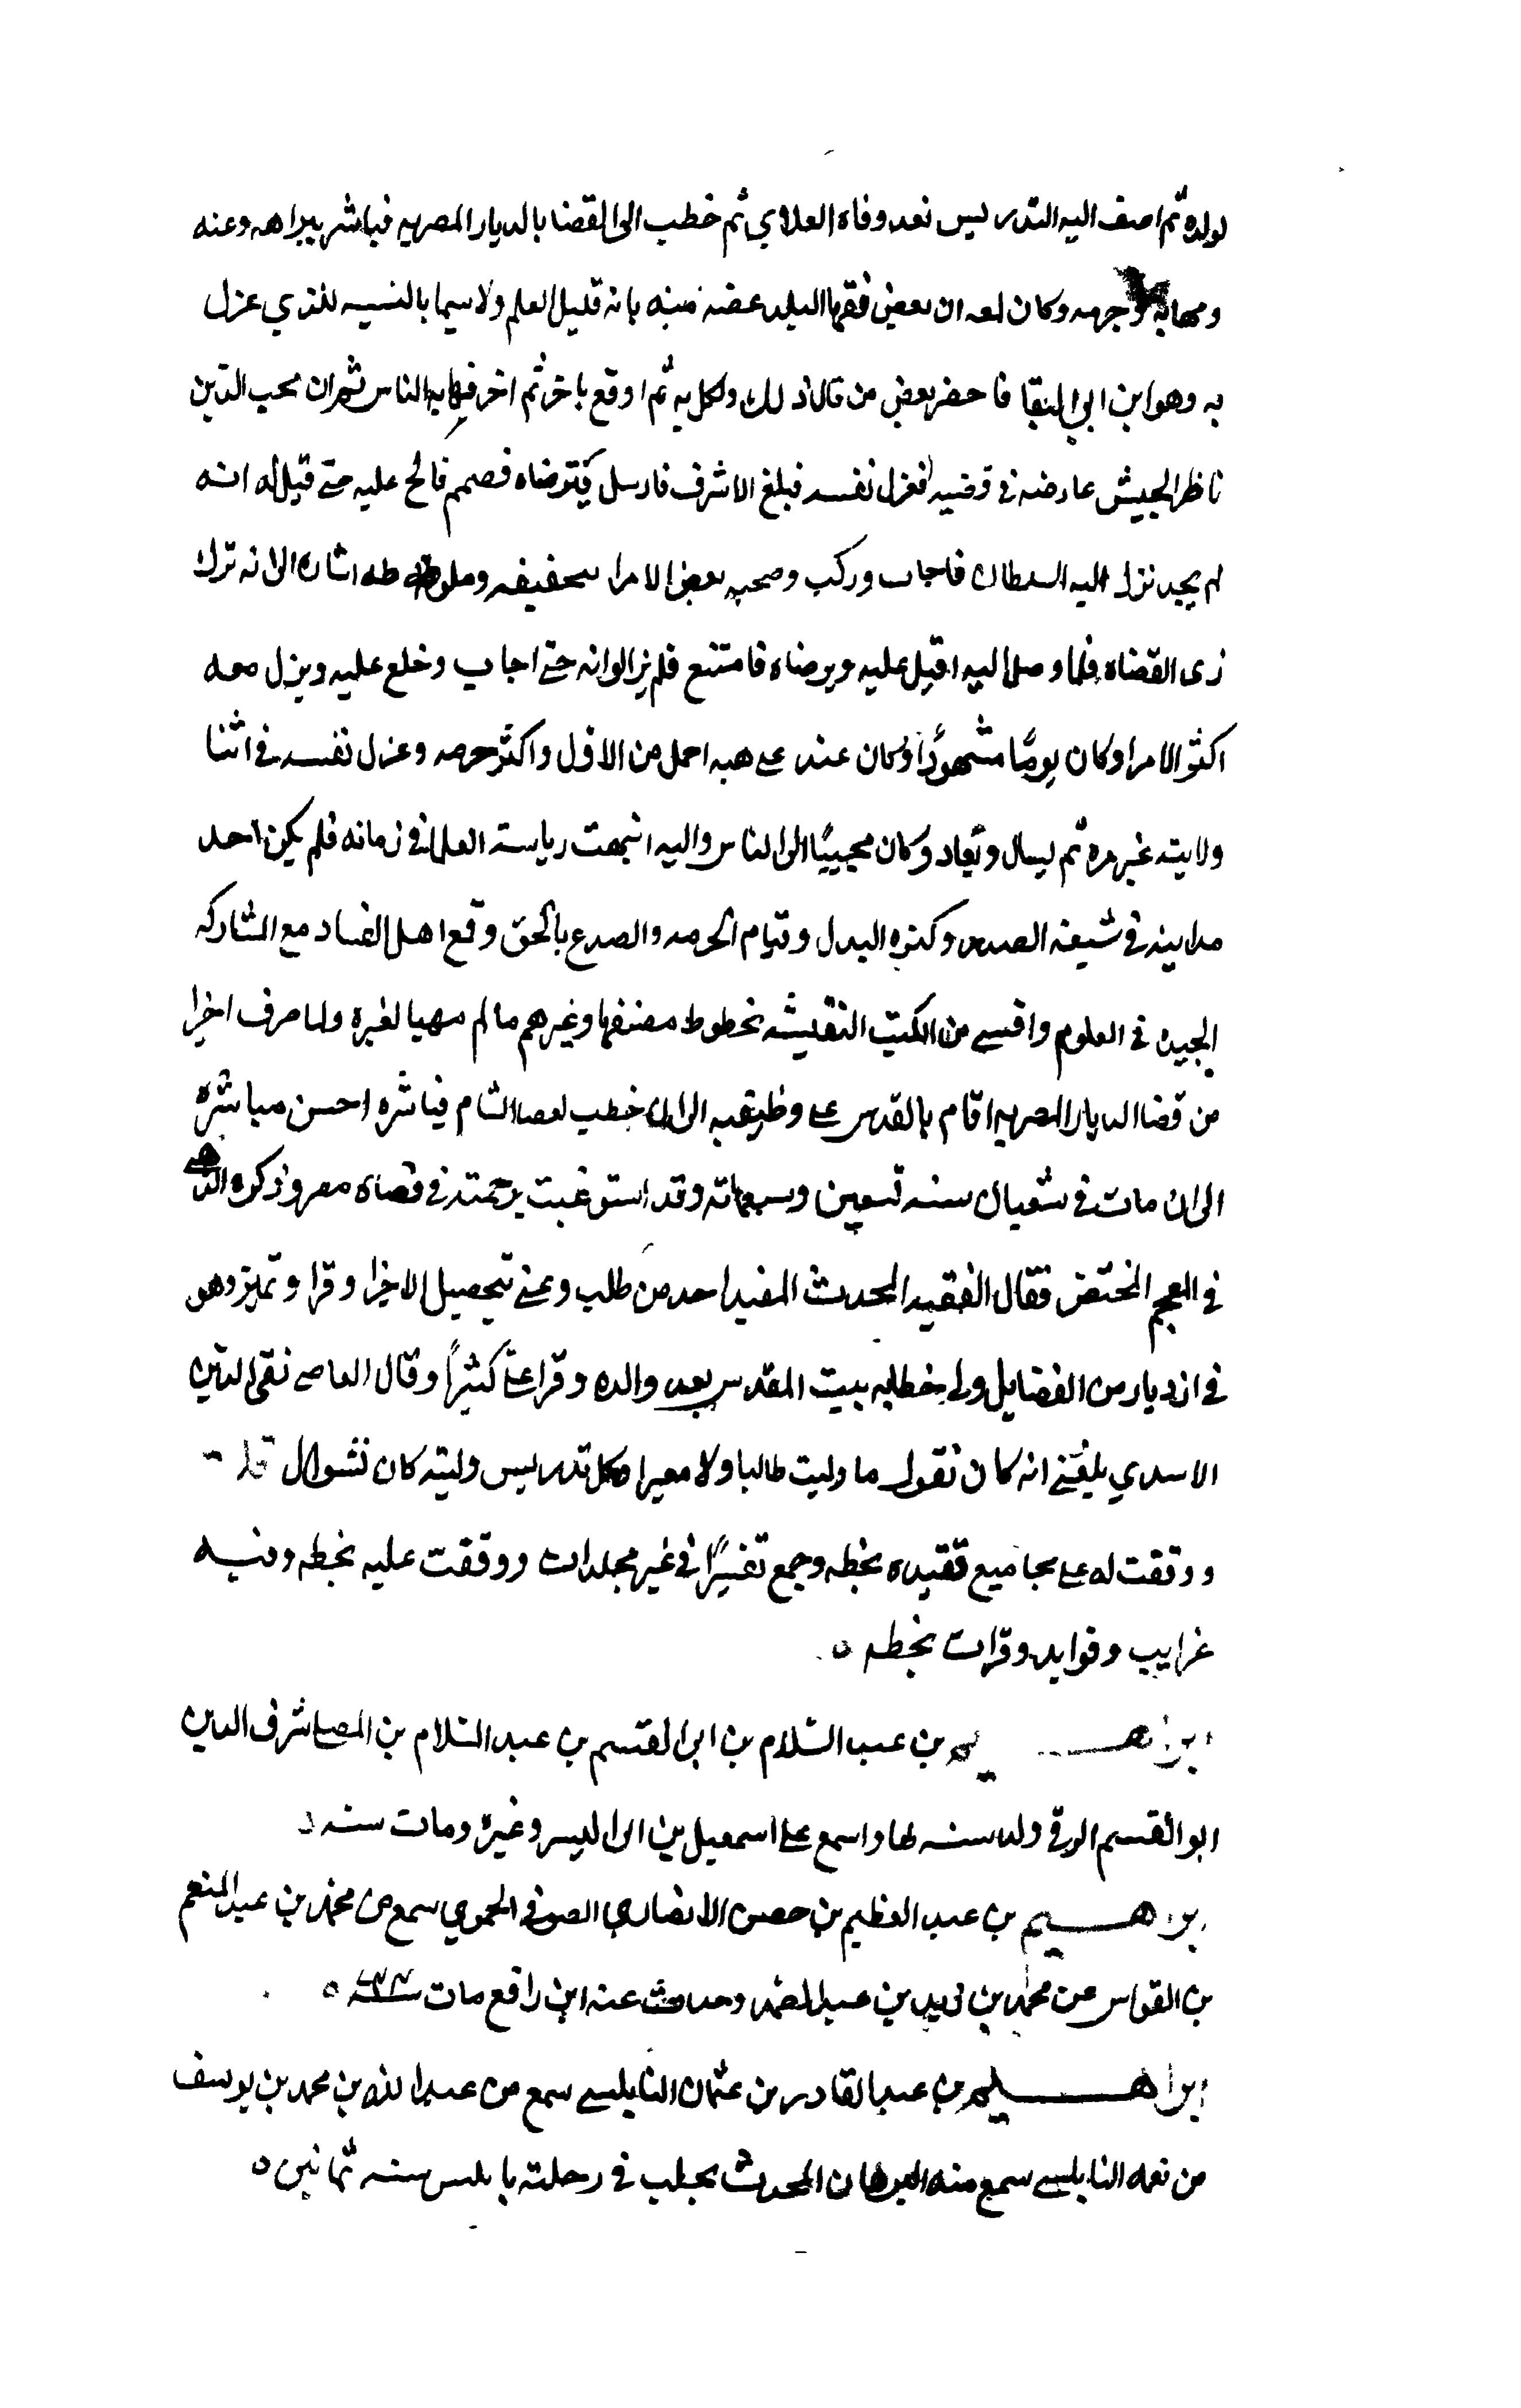 لولده ثم اضف اليه التدريس بعد وفاه العلاي ثم خطب الى القضا بالديار المصريه فباشر بنزاهه وعفه
ومهابه وحرمه وكان بلغه ان بعض فقها البلد غض منه بانه قليل العلم ولا سيما بالنسبه للذي عزل
به وهو ابن ابي البقا فاحضر بعض من قال ذلك ونكل به ثم اوقع باخر ثم اخر فهابه الناس ثم ان محب الدين
ناظر الجيش عارضه في قضيه فعزل نفسه فبلغ الاشرف فارسل يترضاه فصمم فالح عليه حتى قيل له انه
لم يجب نزل اليه السلطان فاجاب وركب وصحبه بعض الامرا بتخفيفه وملوطه اشاره الى انه ترك
زى القضاه فلما وصل اليه اقبل عليه وترضاه فامتنع فلم يزالوا به حتى اجاب وخلع عليه ونزل معه
اكثر الامرا وكان يوما مشهودا وكان عند على هبه اجمل من الاول واكثر حرمه وعزل نفسه في اثنا
ولايته غير مره ثم يسال ويعاد وكان محببا الى الناس واليه انتهت رياسة العلما في زمانه فلم يكن احد
يدانيه في سعة الصدر وكثره البدل وقيام الحرمه والصدع بالحق وقمع اهل الفساد مع المشاركه
الجيده في العلوم واقتنى من الكتب النفيسه بخطوط مصنفها وغيرهم ما لم يتهيا لغيره ولما صرف اخرا
من قضا الديار المصريه اقام بالقدس على وظيفته الى ان خطب لقضا الشام فباشره احسن مباشرة
الى ان مات في شعبان سنه تسعين وسبعمائه وقد استوعبت ترجمته في قضاه مصر وذكره الذهبي
في المعجم المختص فقال الفقيه المحدث المفيد احد من طلب وعنى بتحصيل الاجزا وقرا وتميز وهو
في ازدياد من الفضايل ولى خطابه بيت المقدس بعد والده وقرا على كثيرا وقال القاضي تقى الدين
الاسدي بلغنى انه كان يقول ما وليت طالبا ولا معيدا وكل تدريس وليته كان بسوال قلت
ووقفت له على مجاميع مفيده بخطه وجمع تفسيرا في عشر مجلدات ووقفت عليه بخطه وفيه
غرايب وفوايد وقرات بخطه ٥
ابراهيم بن عبد السلام بن ابى القسم بن عبد السلام بن شرف الدين
ابو القسم الرقى ولد سنه واسمع على اسمعيل بن ابى اليسر وغيره ومات سنه
ابراهيم بن عبد العظيم بن حصن الانصاري الصوفى الحموي سمع من محمد بن عبد المنعم
بن القواس عن محمد بن بن عبد الصمد وحدث عنه ابن رافع مات سنه ٥
ابراهيم بن عبد القادر بن عثمان النابلسى سمع من عبد الله بن محمد بن يوسف
من نعمه النابلسى سمع منه البرهان المحدث بحلب في رحلته بنابلس سنه ثمانين ٥